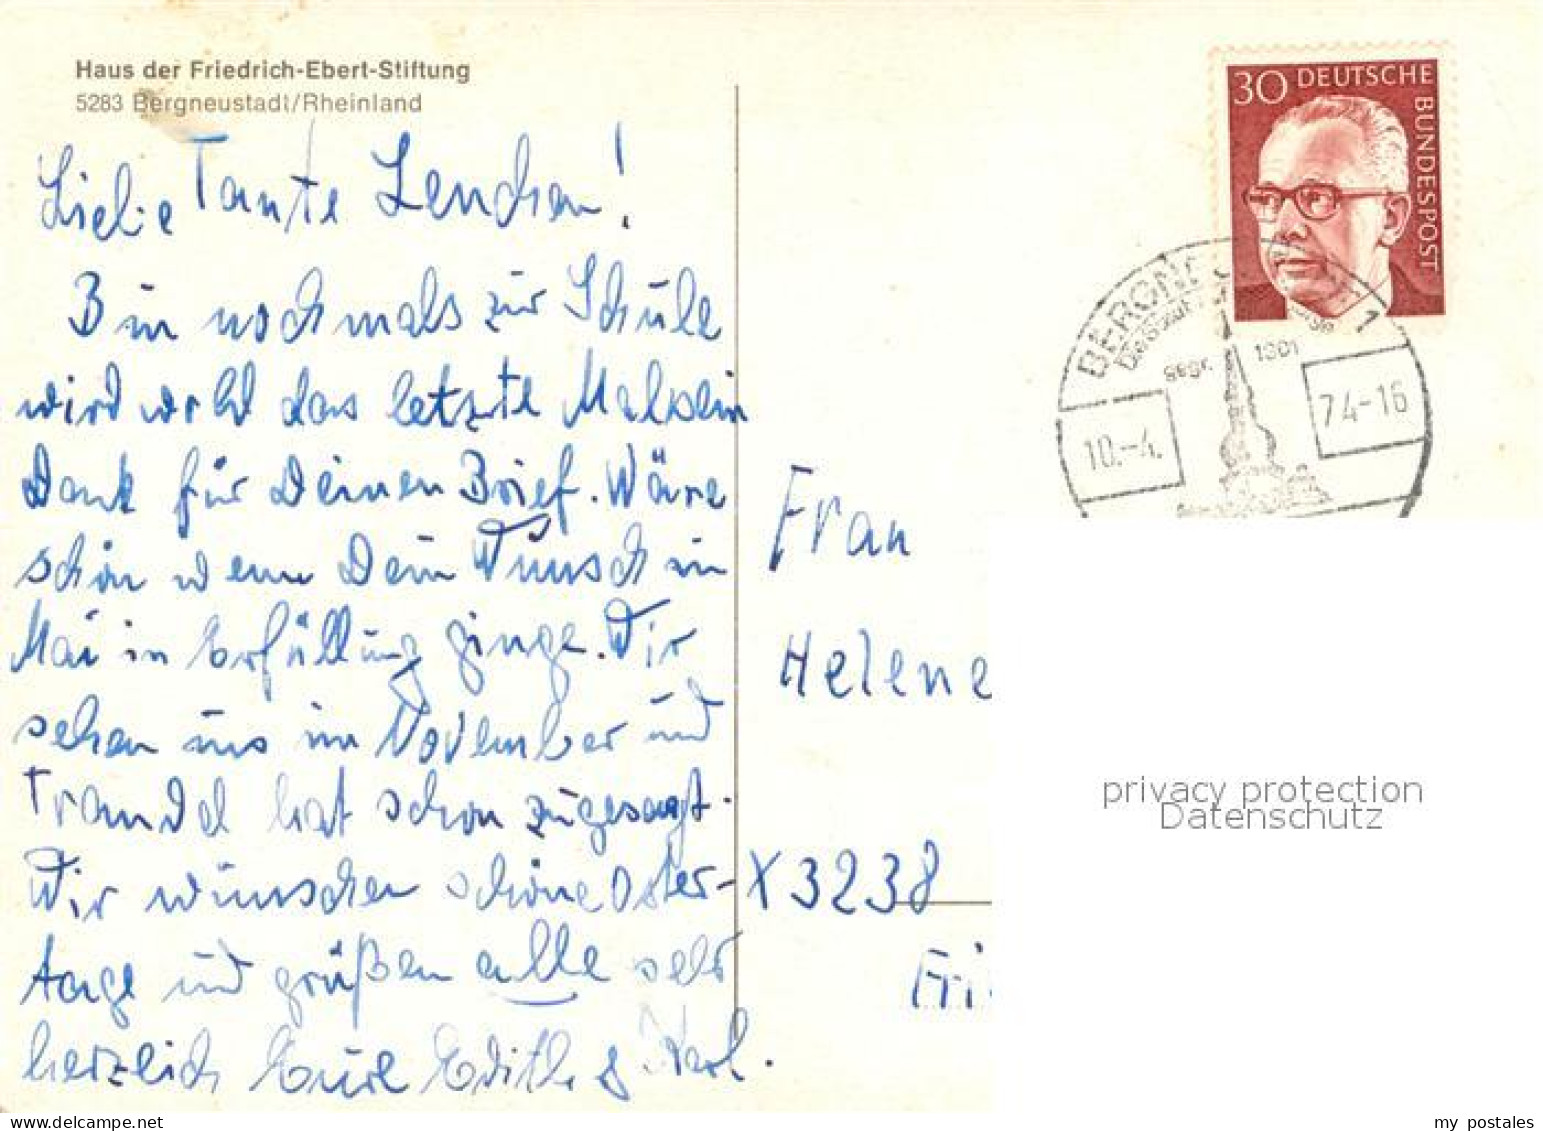 Haus der Friedrich-Ebert-Stiftung
5283 Bergneustadt/Rheinland
Liebe Tante Lenchen!
Bin nochmals zur Schule
wird wohl das letzte Mal sein
Dank für Deinen Brief. Wäre
schön wenn Dein Wunsch im
Mai in Erfüllung ginge. Wir
sehen uns im November und
Traudel hat schon zugesagt.
Wir wünschen schöne Oster-
tage und grüßen alle sehr
herzlich Eure Edith & Karl.
30 DEUTSCHE BUNDESPOST
BERGNE 1
gegr. 1301
10.-4. 74-16
Frau
Helene
X3238
Fri
privacy protection
Datenschutz
my postales